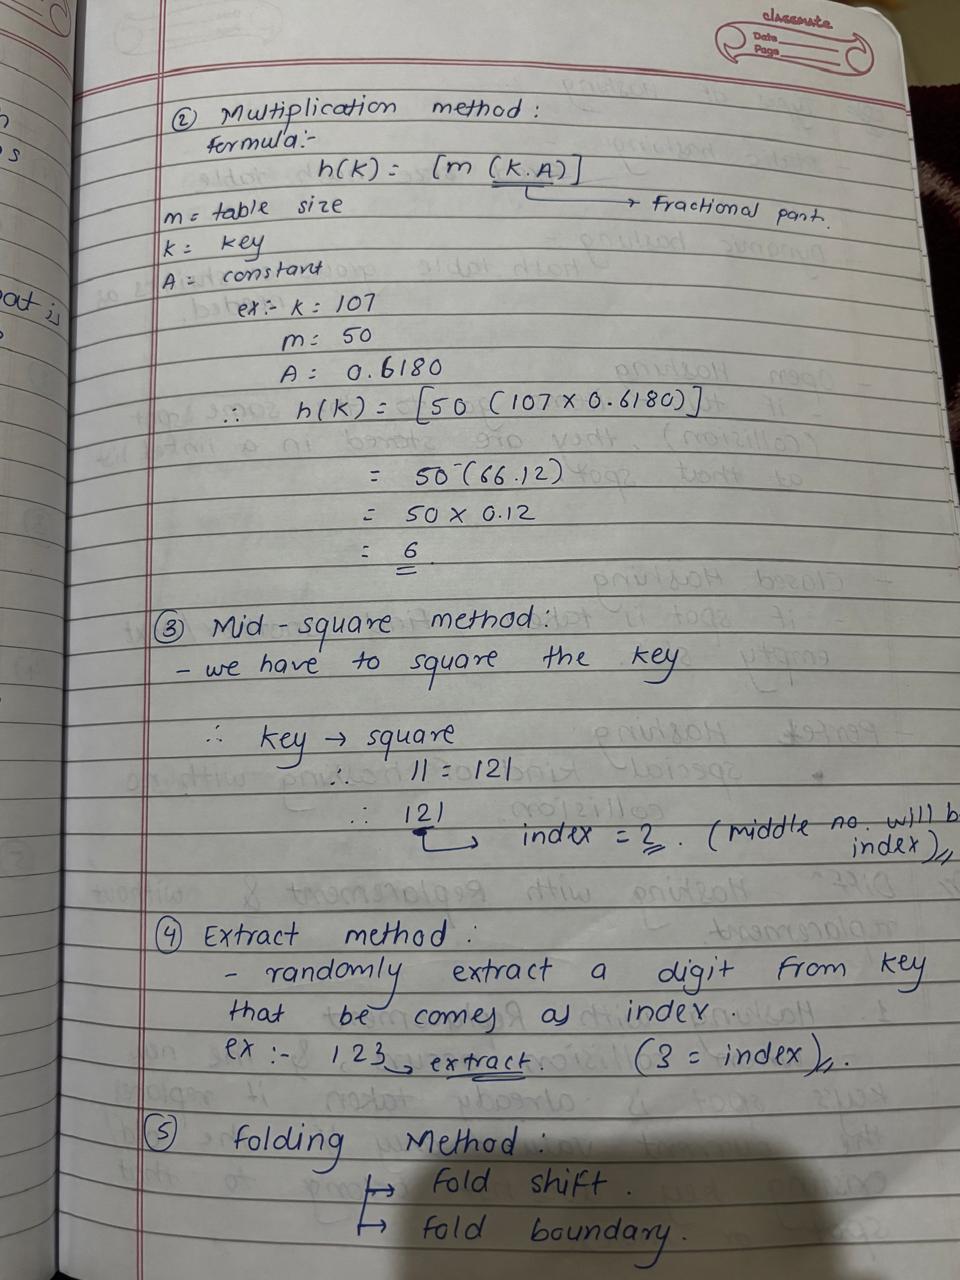 classmate
Date
Page
② Multiplication method :
formula:-
h(k) = [m (K.A)]
→ fractional part.
m = table size
k = key
A = constant
ex:- k = 107
m = 50
A = 0.6180
∴ h(k) = [50 (107 x 0.6180)]
= 50 (66.12)
= 50 x 0.12
= 6
③ Mid-square method:
- we have to square the key
∴ key → square
∴ 11 = 121
∴ 121
→ index = 2. (middle no. will b
index)
④ Extract method :
- randomly extract a digit from key
that be comes as index.
ex :- 123 → extract. (3 = index).
⑤ folding Method :
→ fold shift.
→ fold boundary.